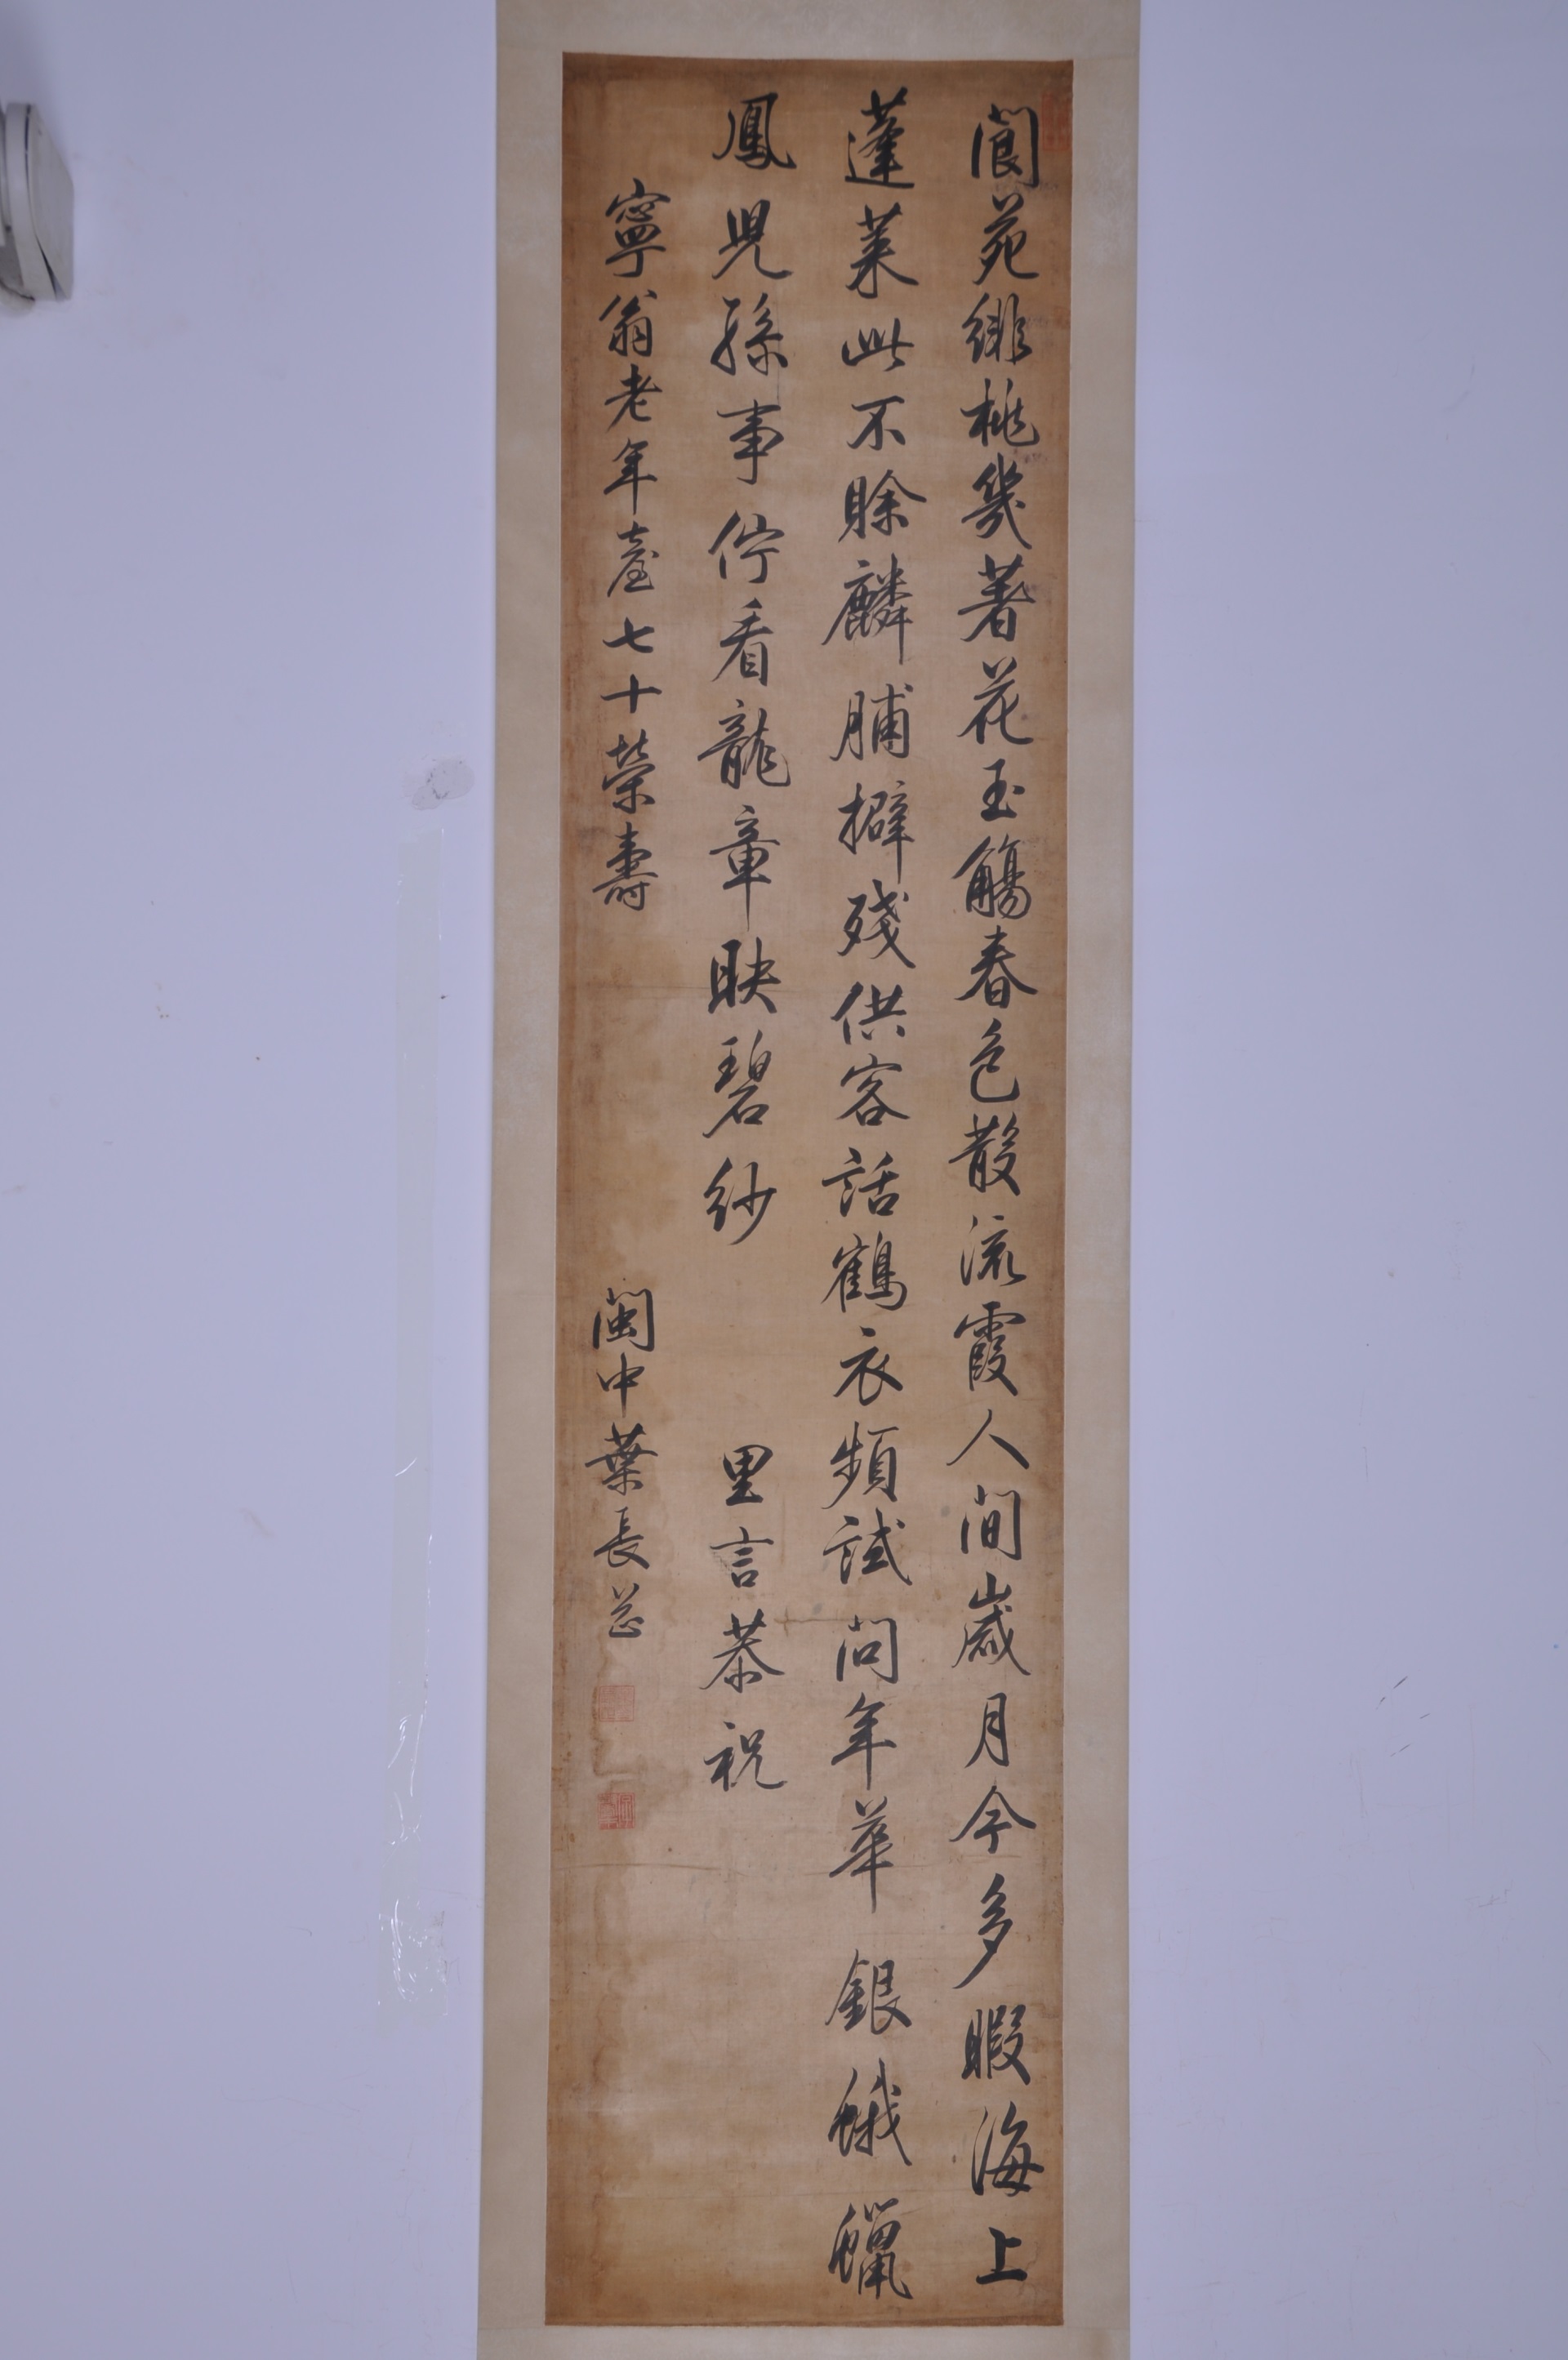 閬苑緋桃幾著花玉觴春色散流霞人間歲月今多暇海上
蓬萊此不賒麟脯擗殘供客話鶴衣頻試問年華銀蛾蠟
鳳兒孫事佇看龍章映碧紗 里言恭祝
寧翁老年臺七十榮壽 閩中葉長芯